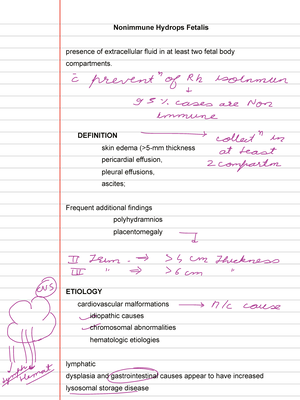 Nonimmune Hydrops Fetalis
presence of extracellular fluid in at least two fetal body
compartments.
c̄ preventⁿ of Rh isoimmun
↓
95% cases are Non
immune
DEFINITION → collectⁿ in
at least
2 compartm
skin edema (>5-mm thickness
pericardial effusion,
pleural effusions,
ascites;
Frequent additional findings
polyhydramnios
placentomegaly
II Trim. → >4 cm Thickness
III " → >6 cm "
ETIOLOGY
cardiovascular malformations → M/c cause
idiopathic causes
chromosomal abnormalities
hematologic etiologies
CNS
lympha
Hemat
lymphatic
dysplasia and gastrointestinal causes appear to have increased
lysosomal storage disease